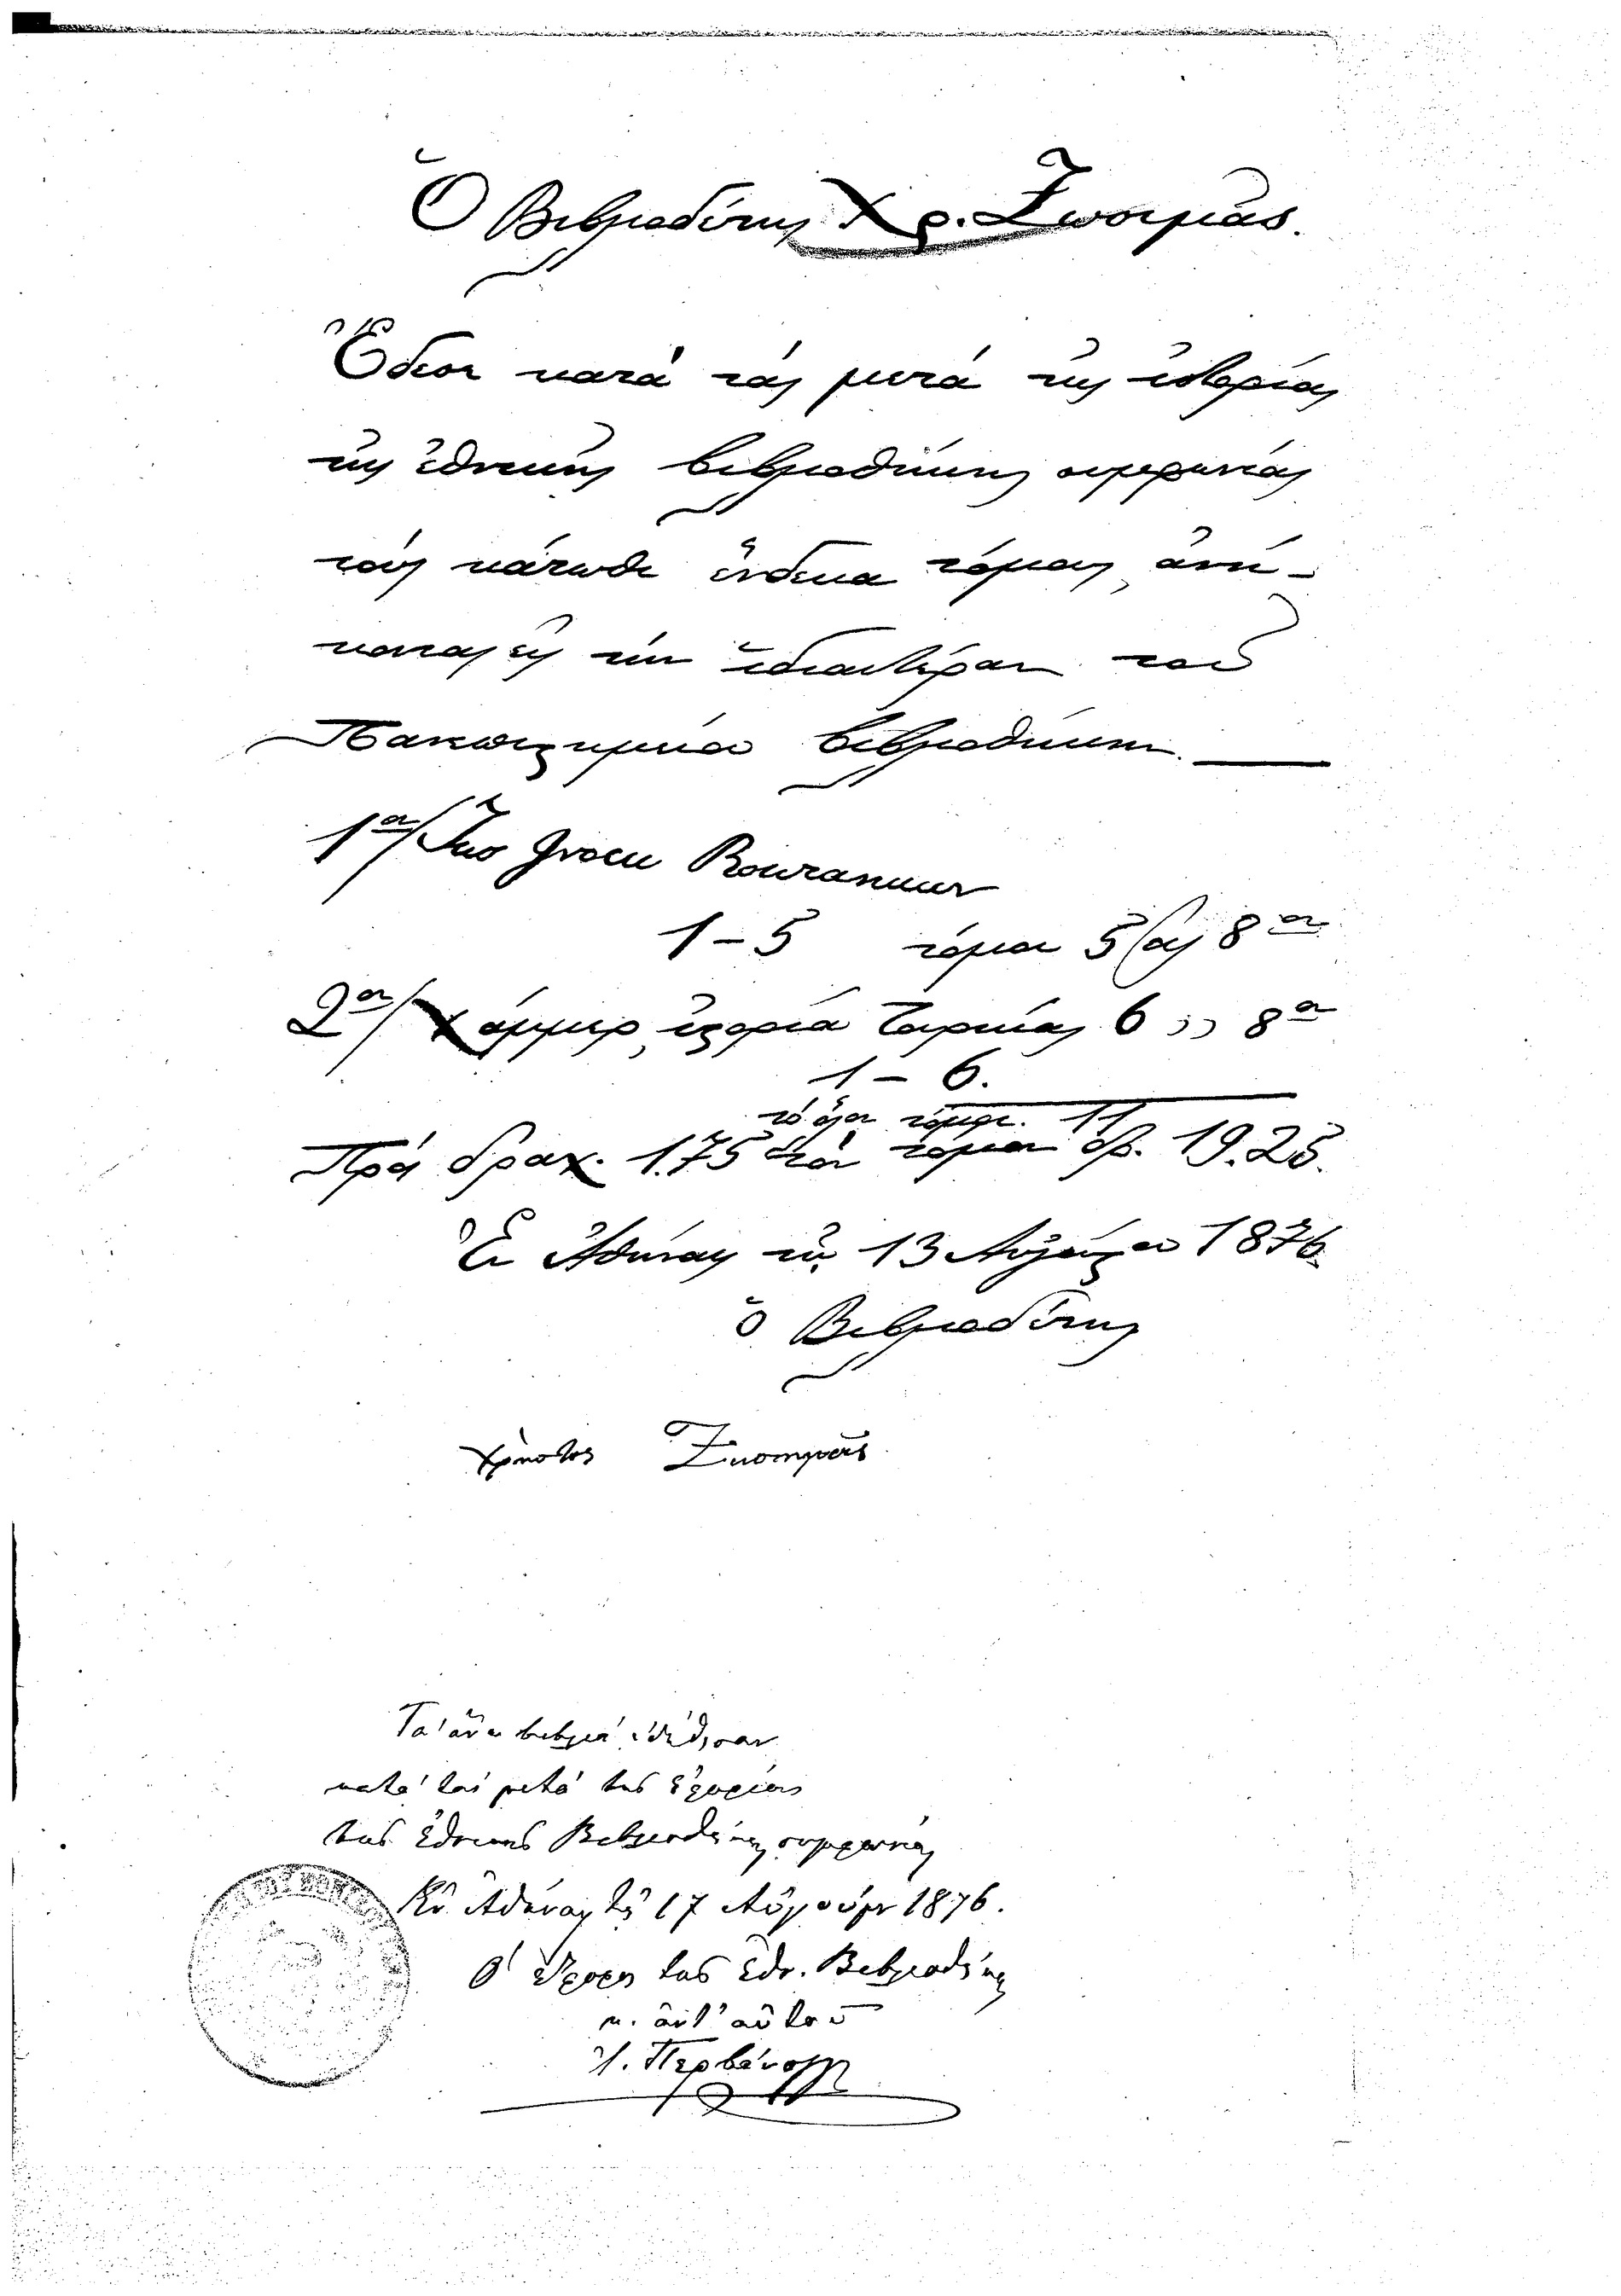 Ὁ Βιβλιοδέτης Χρ. Ζωσιμᾶς.
Ἔδεσε κατὰ τὰς μετὰ τῆς ἐφορίας
τῆς ἐθνικῆς βιβλιοθήκης συμφωνίας
τοὺς κάτωθι ἕνδεκα τόμους, ἀνή-
κοντας εἰς τὴν ἰδιαιτέραν τοῦ
Πανεπιστημίου βιβλιοθήκην.
1ον/ Jus Graeco Romanum
1 – 5 τόμοι 5 εἰς 8ον
2ον/ Χάμμερ, ἱστορία Τουρκίας 6 " 8ον
1 – 6.
τὸ ὅλον τόμοι. 11
Πρὸς δραχ. 1.75 τὸν τόμον δρ. 19.25.
Ἐν Ἀθήναις τῇ 13 Αὐγούστου 1876
ὁ Βιβλιοδέτης
Χρῆστος Ζωσημᾶς
Τὰ ἄνω βιβλία ἐδέθησαν
κατὰ τὰς μετὰ τῆς ἐφορίας
τῆς Ἐθνικῆς Βιβλιοθήκης συμφωνίας
Ἐν Ἀθήναις τῇ 17 Αὐγούστου 1876.
Ὁ Ἔφορος τῆς Ἐθν. Βιβλιοθήκης
κ. ἀντ' αὐτοῦ
Ι. Περβάνογλου